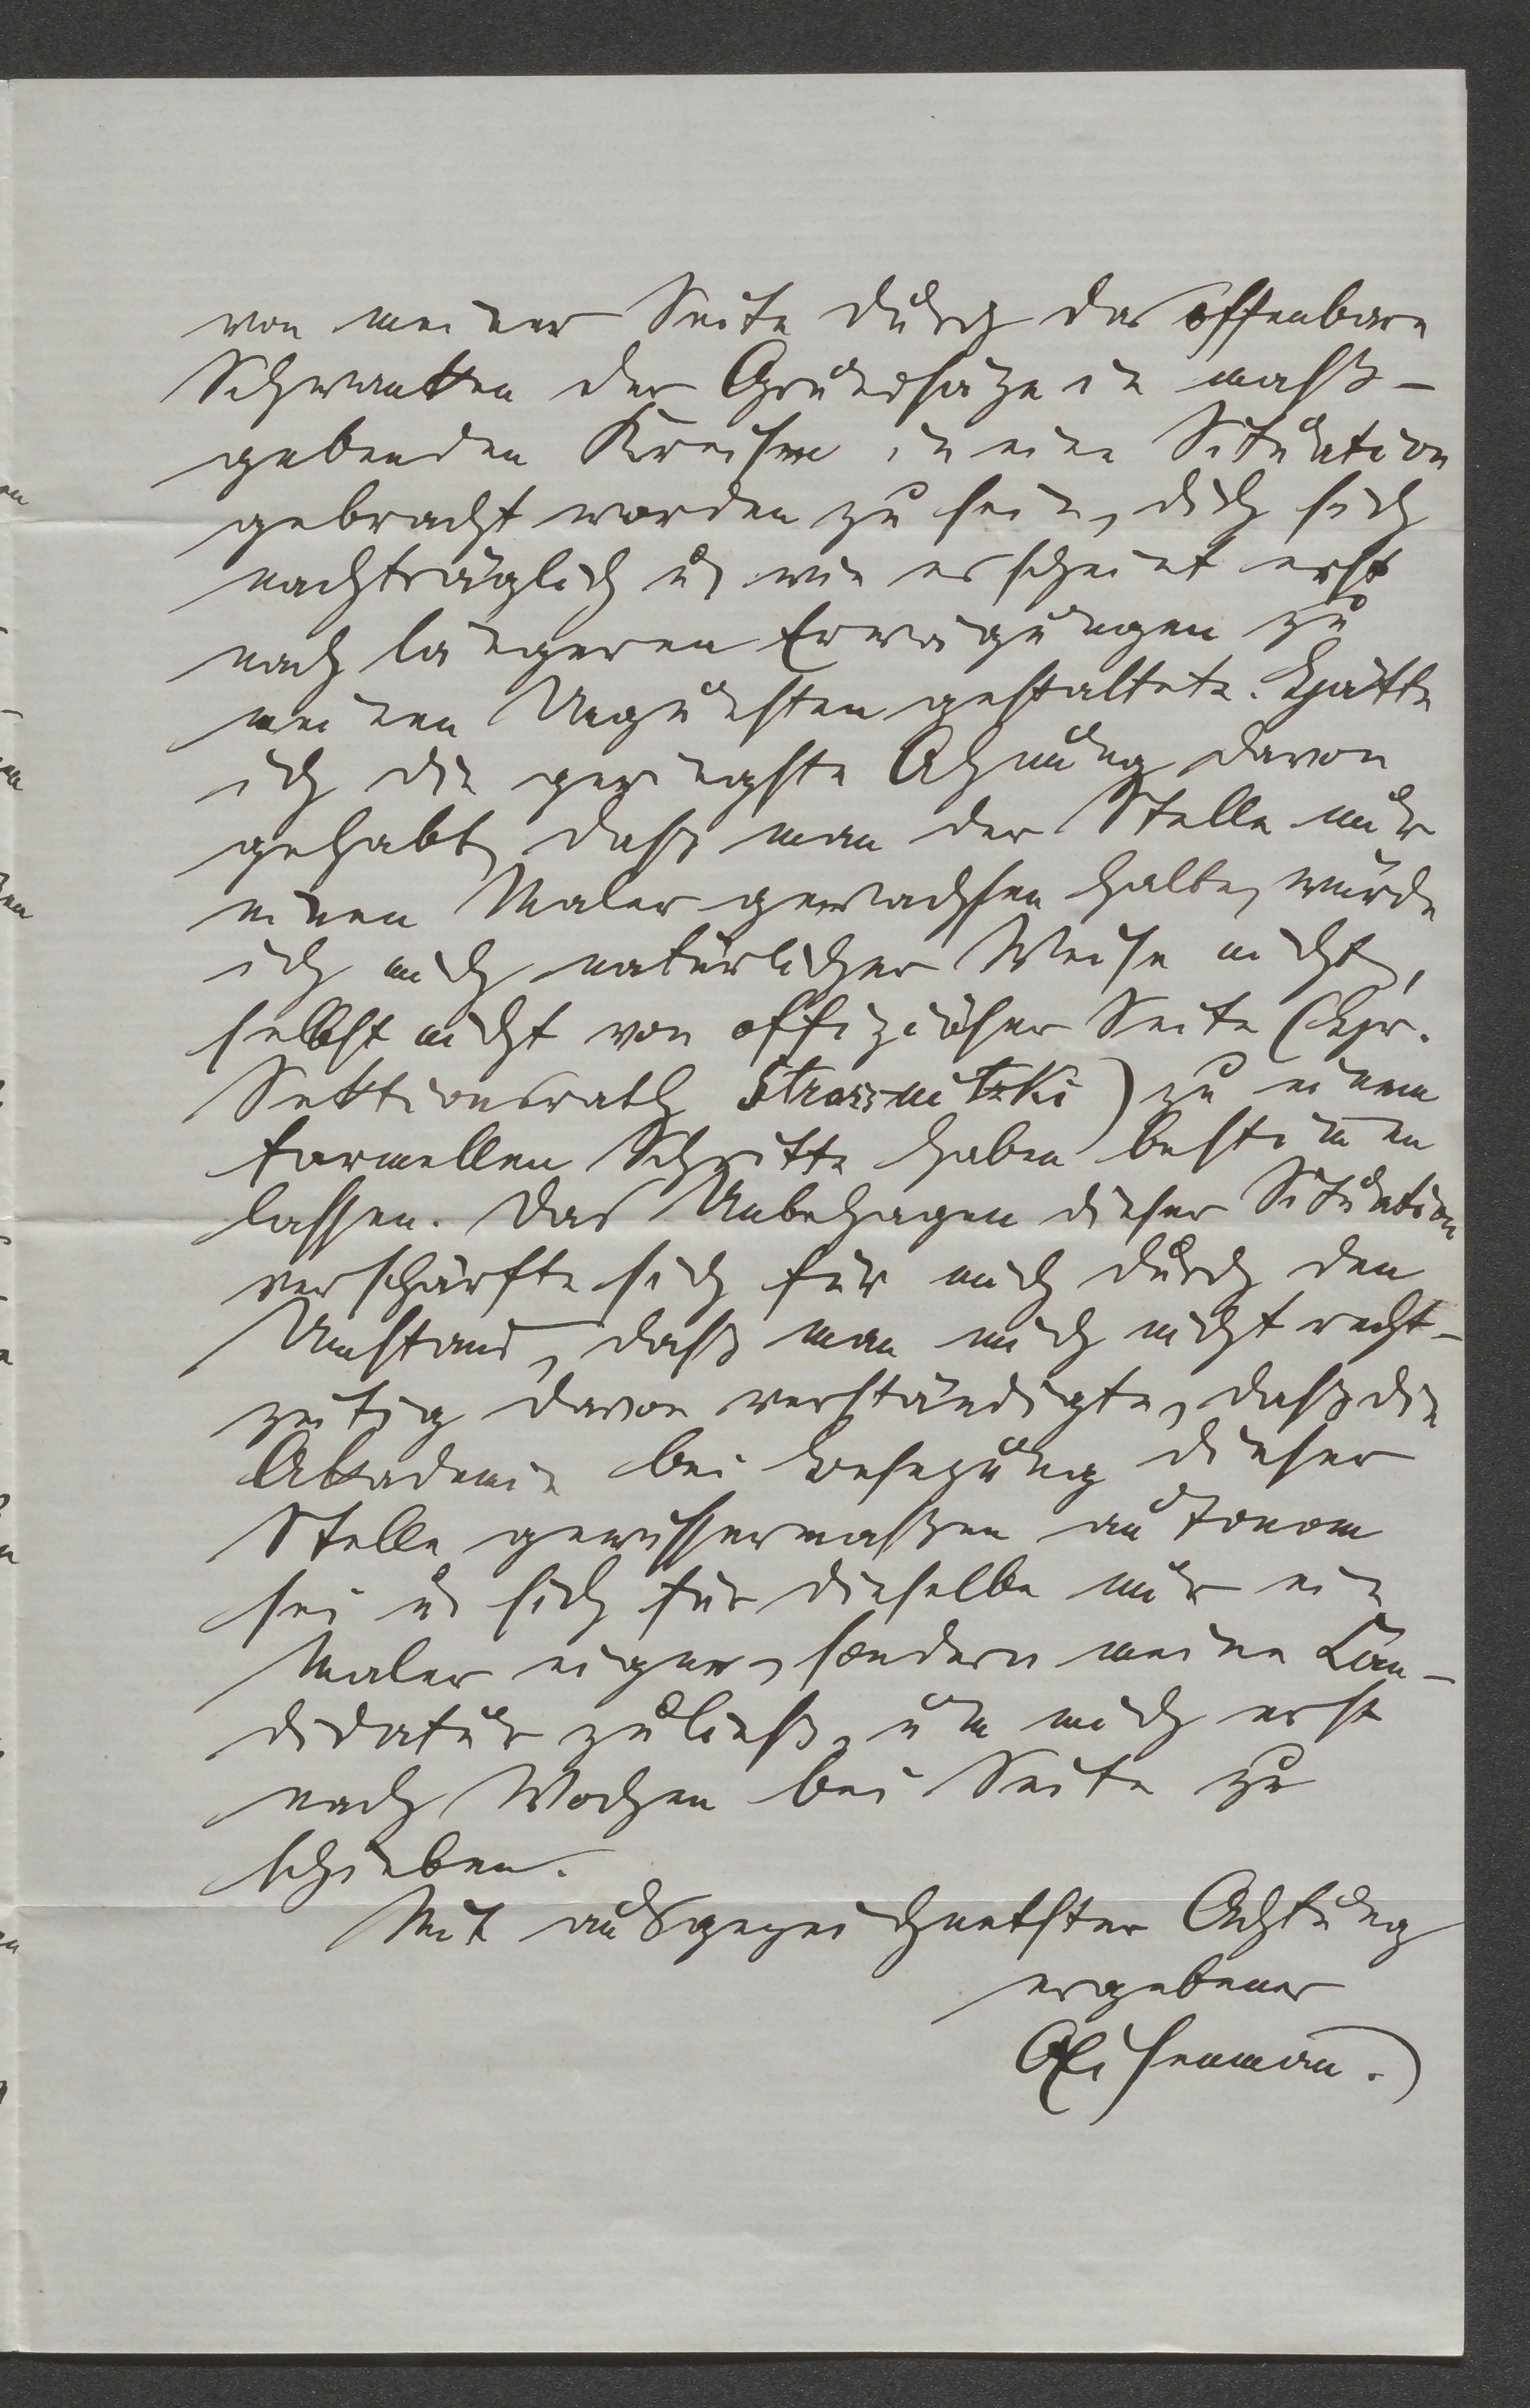 von meiner Seite durch das offenbare
Schwanken der Grundsätze in maß-
gebenden Kreisen in eine Situation
gebracht worden zu sein, die sich
nachträglich u. wie es scheint erst
nach längeren Erwägungen zu
meinen Ungunsten gestaltete. Hätte
ich die geringste Ahnung davon
gehabt, daß man der Stelle nur
einen Maler gewachsen halte, würde
ich mich natürlicher Weise nicht,
selbst nicht von offiziöser Seite (Hr.
Sektionsrath) zu einem
formellen Schritte haben bestim̅en
lassen. Das Unbehagen dieser Situation
verschärfte sich für mich durch den
Umstand, daß man mich nicht recht-
zeitig davon verständigte, daß die
Akademie bei Besetzung dieser
Stelle gewissermaßen autonom
sei u. sich für dieselbe nur ein
Maler eigne, sondern meine Can-
didatur zuließ, um mich erst
nach Wochen bei Seite zu
schieben.
Mit ausgezeichnetster Achtung
ergebener
OEisenmann.